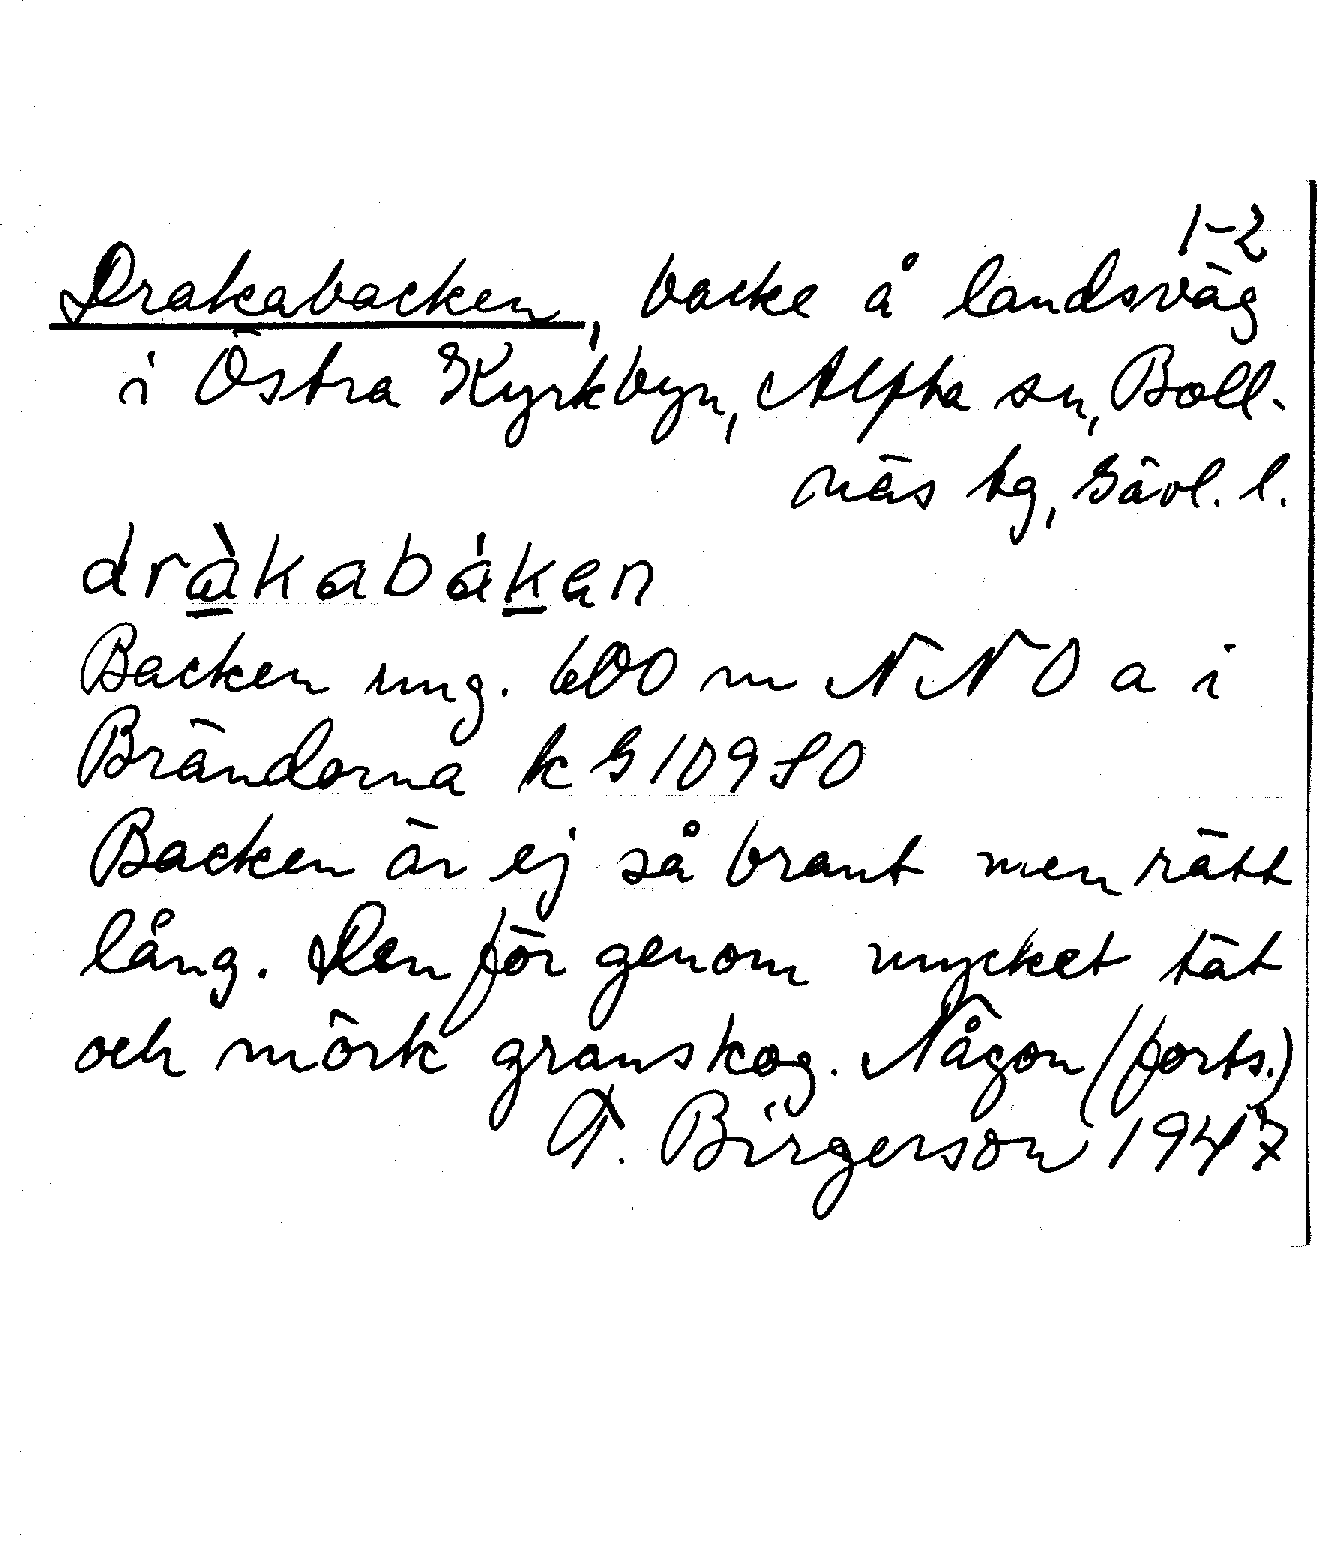 1-2
Drakabacken, backe å landsväg
i Östra Kyrkbyn, Alfta sn, Boll-
näs tg, Gävl. l.
dràkabákan
Backen ung. 600 m NNO a i
Brändorna k G 109 SO
Backen är ej så brant men rätt
lång. Den för genom mycket tät
och mörk granskog. Någon (forts.)
T. Birgerson 1947